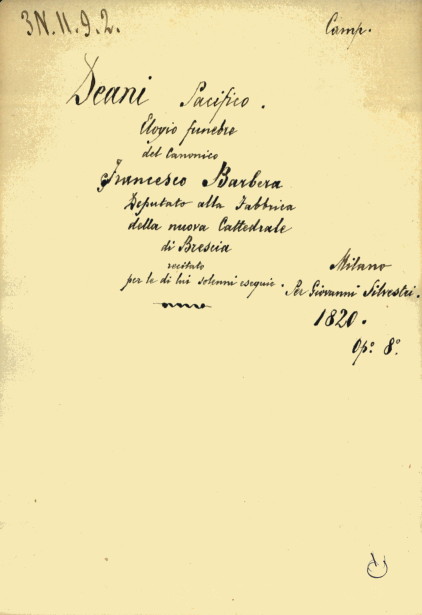 3N.11.9.2.
Camp.
Deani Pacifico.
Elogio funebre
del Canonico
Francesco Barbera
Deputato alla Fabbrica
della nuova Cattedrale
di Brescia
recitato
per le di lui solenni esequie.
Milano
Per Giovanni Silvestri.
1820.
Op.º 8º.